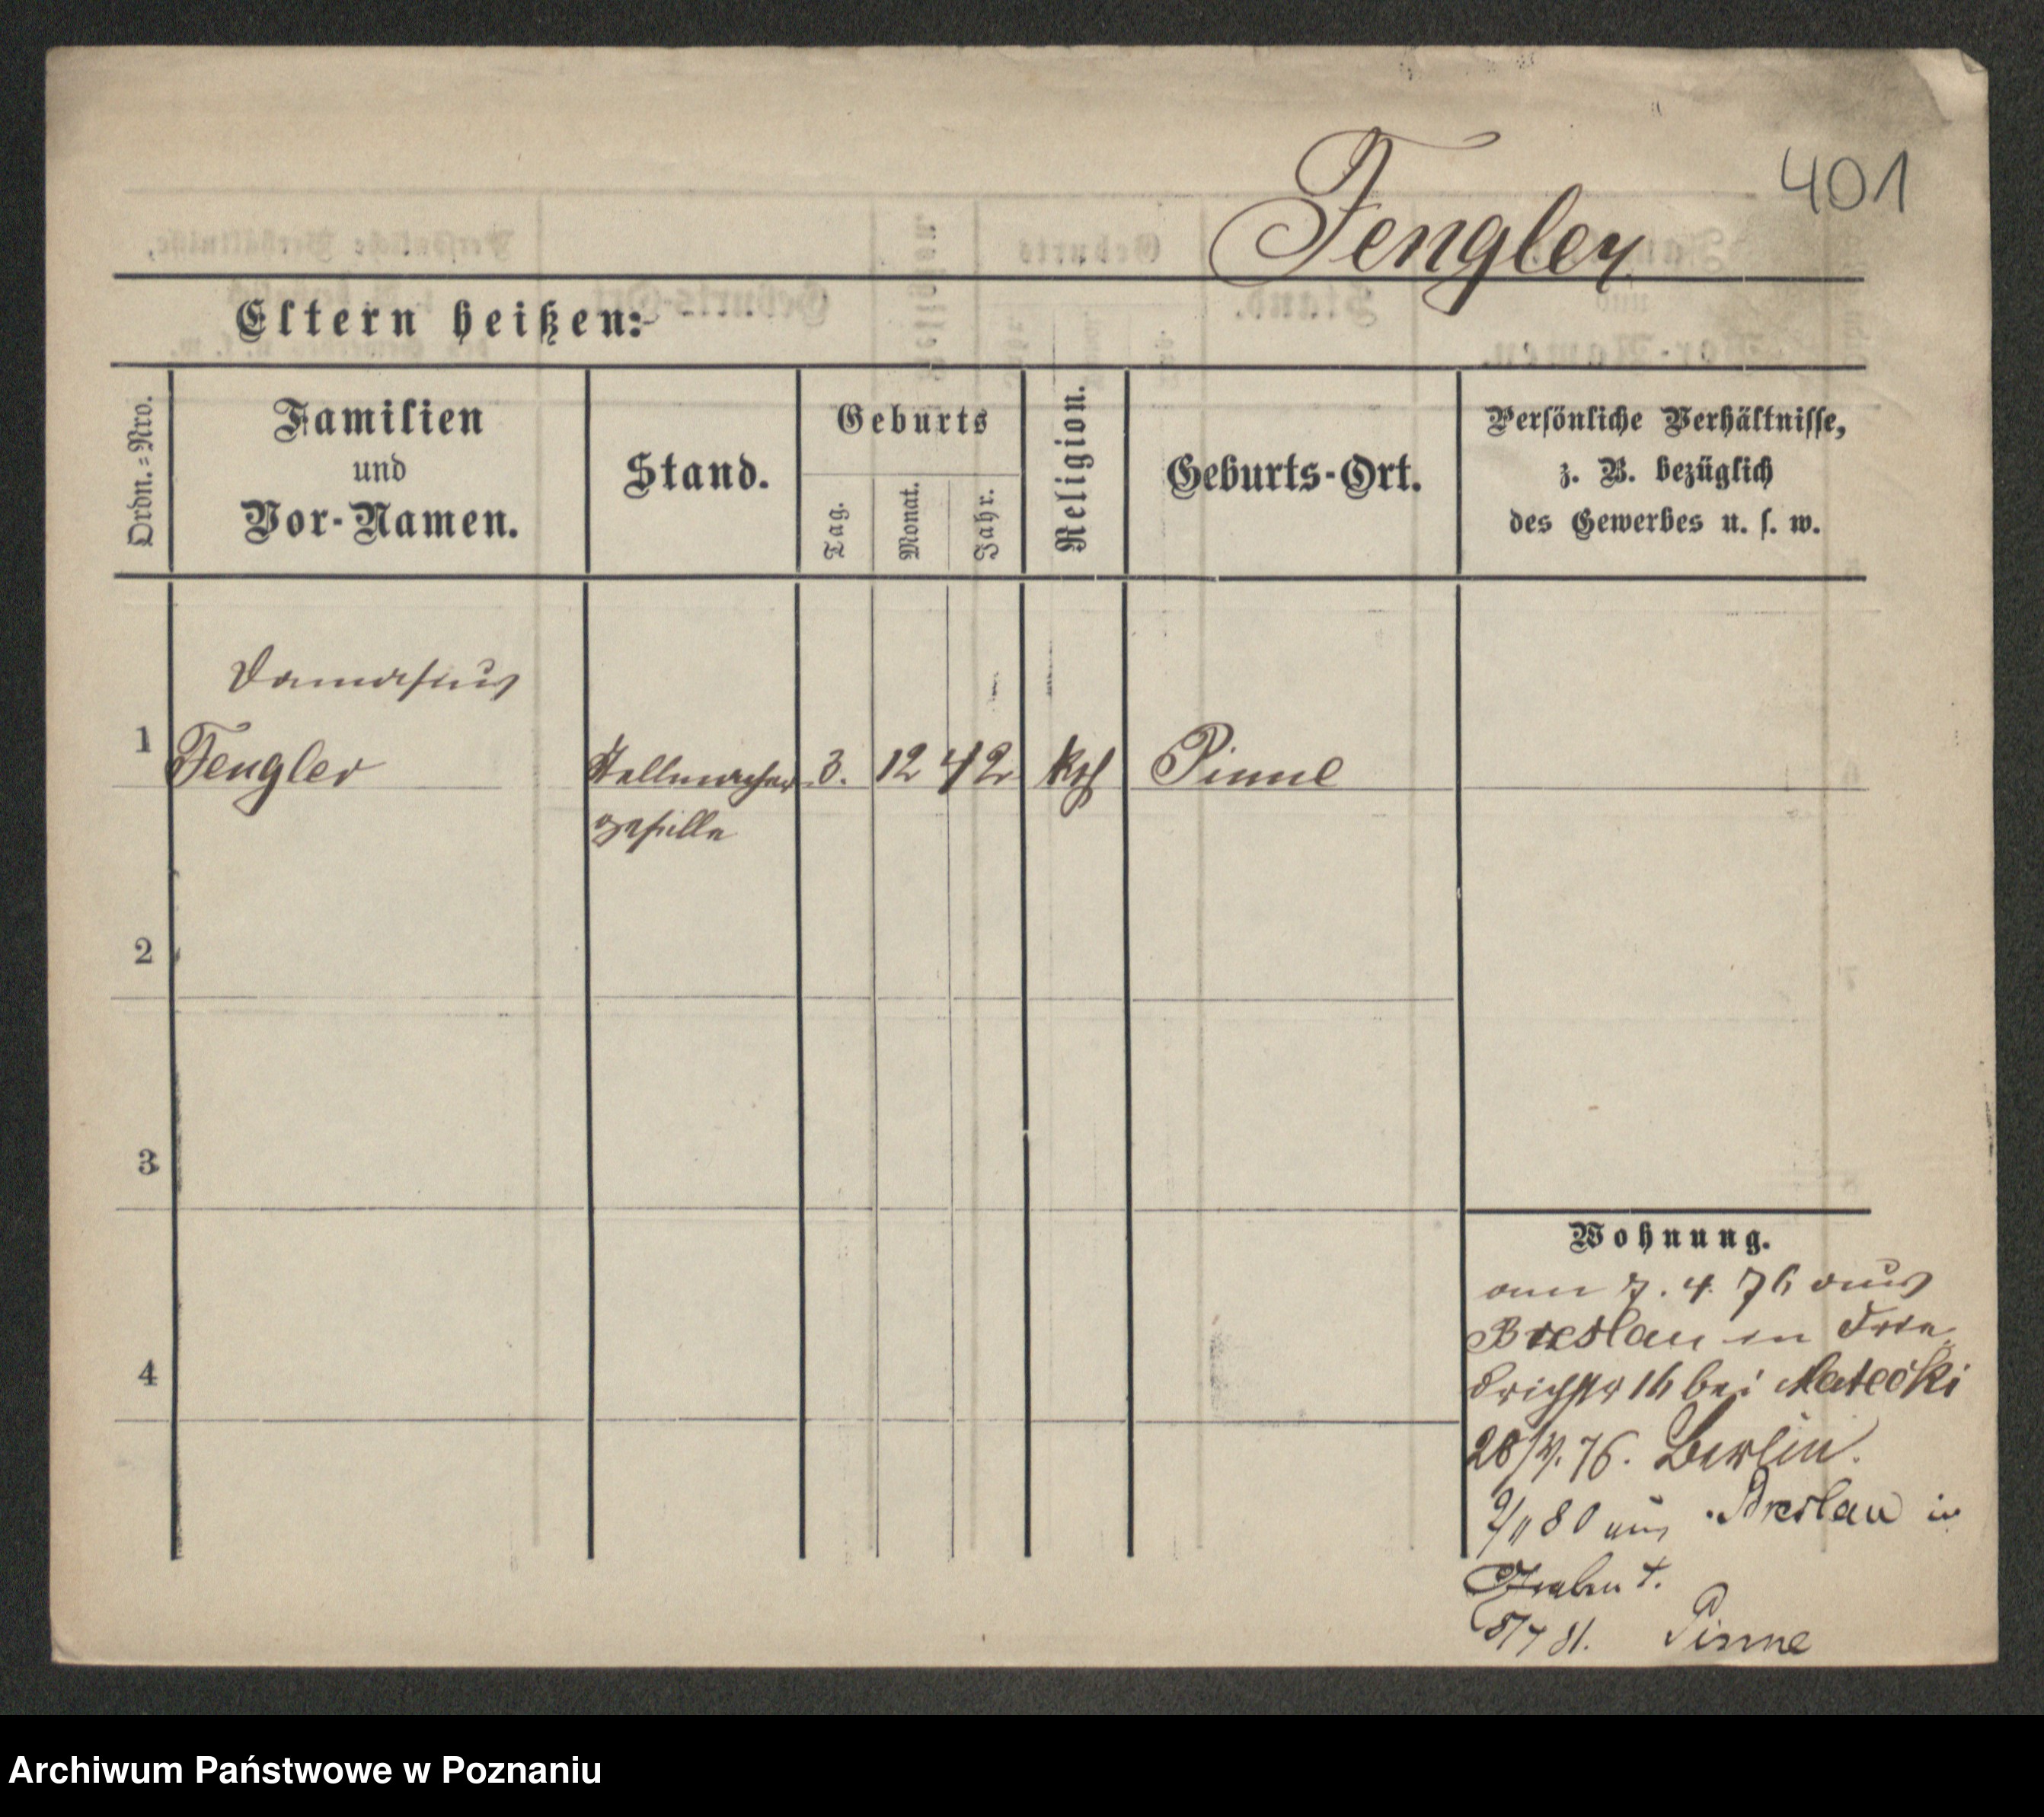 401
Fengler
Eltern heißen:
Ordn.=Nro.
Familien
und
Vor-Namen.
Stand.
Geburts
Tag.
Monat.
Jahr.
Religion.
Geburts-Ort.
Persönliche Verhältnisse,
z. B. bezüglich
des Gewerbes u. s. w.
Damasius
1 Fengler Stellmacher 3. 12 42 kth Pinne
geselle
2
3
4
Wohnung.
am 7. 4. 76 aus
Breslau in Frie
drichstr 16 bei Matecki
28/ 76. Berlin.
9/11 80 aus Breslau in
Graben 7.
8/7 81. Pinne
Archiwum Państwowe w Poznaniu